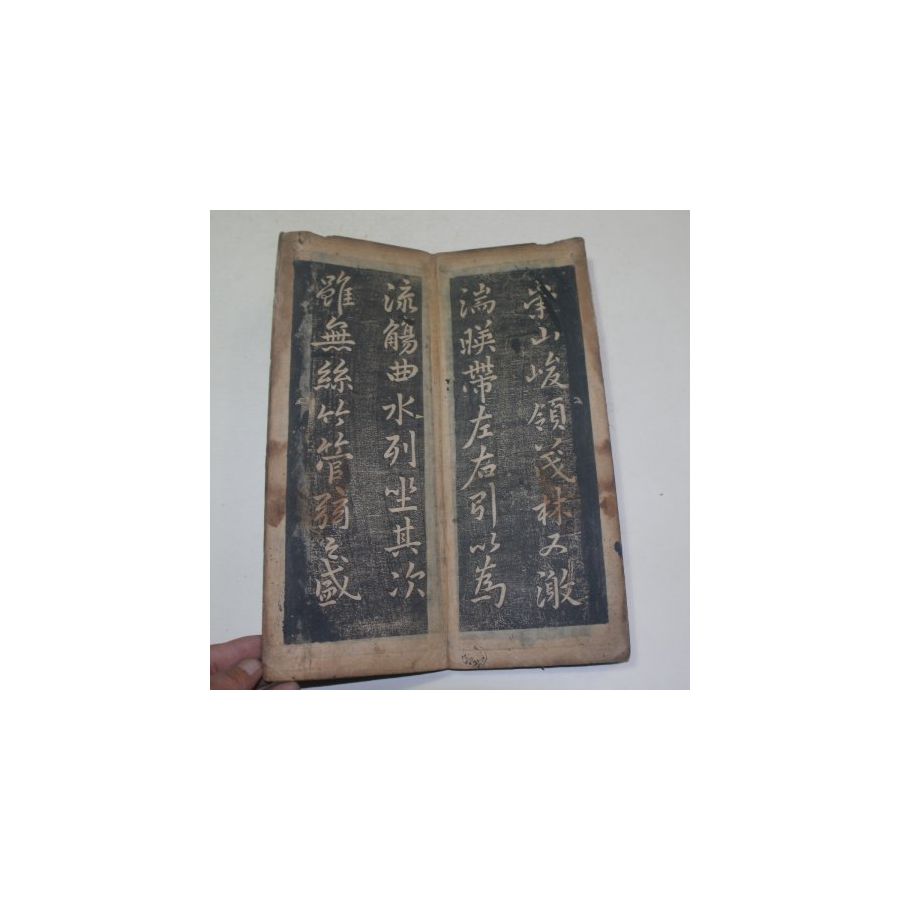 崇山峻領茂林又激
湍暎帶左右引以為
流觴曲水列坐其次
雖無絲竹管弦之盛